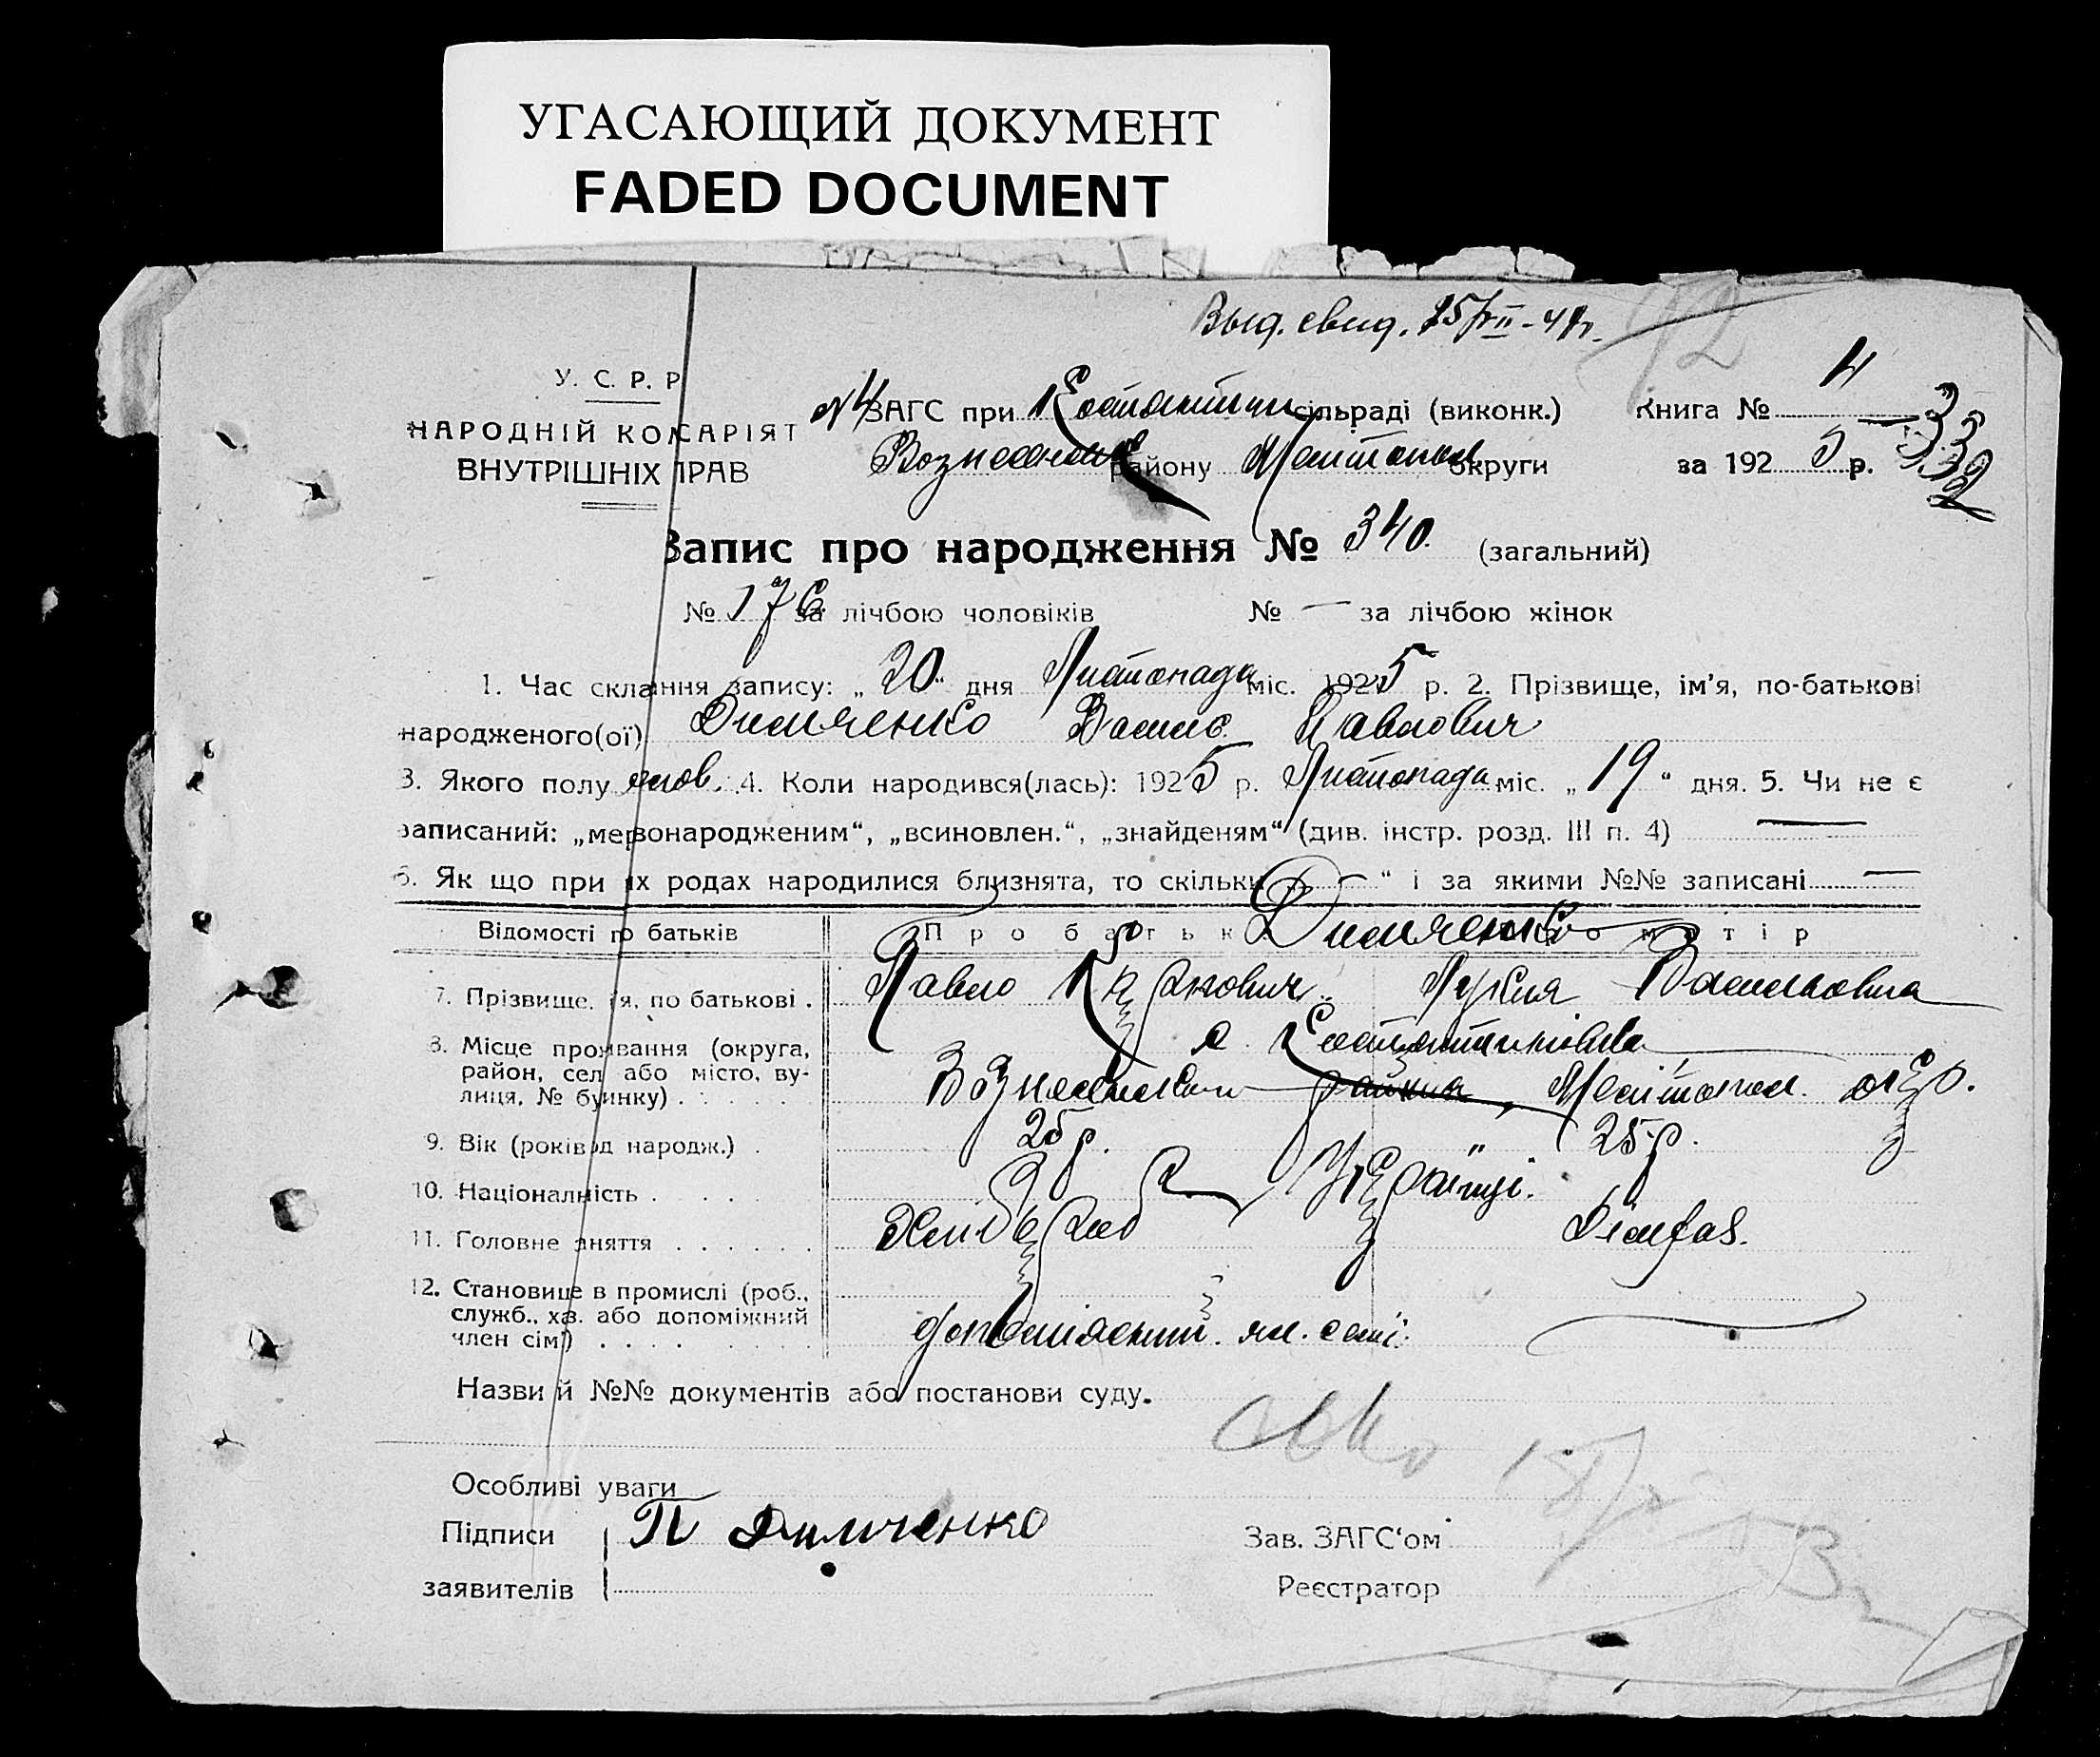 УГАСАЮЩИЙ ДОКУМЕНТ
FADED DOCUMENT
Выд. свид. 25/VII-41г.
92
У. С. Р. Р.
НАРОДНІЙ КОМІСАРІЯТ
ВНУТРІШНІХ СПРАВ
ЗАГС при Костянтин сільраді (виконк.) Книга № 4
339
Вознесенськ району Мелітопол округи за 1925 р.
Запис про народження № 340. (загальний)
№ 176 за лічбою чоловіків № — за лічбою жінок
1. Час складання запису: „20“ дня Листопада міс. 1925 р. 2. Прізвище, ім'я, по-батькові
народженого(ої) Димченко Василь Павлович
3. Якого полу чолов. 4. Коли народився(лась): 1925 р. Листопада міс. „19“ дня. 5. Чи не є
записаний: „мертвонародженим“, „всиновлен.“, „знайденям“ (див. інстр. розд. III п. 4) —
6. Як що при їх родах народилися близнята, то скільки „—“ і за якими №№ записані —
Відомості про батьків Про батька Про матір
Димченко
7. Прізвище, ім'я, по батькові . Павло Василовна
8. Місце проживання (округа, район, село або місто, вулиця, № будинку) . с. Костянтинівка
Вознесенськ району, Мелітопол. окр.
9. Вік (років од народж.) . 25 р. " 25 р.
10. Національність . Українці.
11. Головне заняття . Хлібороб Домгос.
12. Становище в промислі (роб., служб., хаз. або допоміжний член сім'ї) допоміжний чл. семї.
Назви й №№ документів або постанови суду.
Особливі уваги
Підписи П Димченко Зав. ЗАГС'ом
заявителів Реєстратор